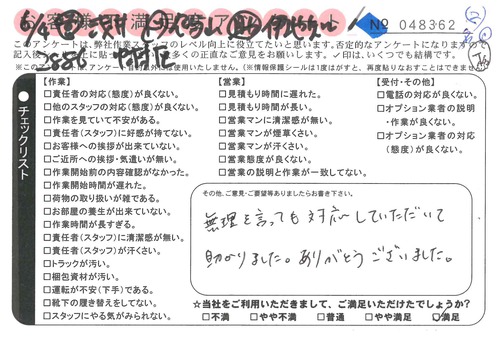 No 048362
このアンケートは、弊社作業スタッフのレベル向上に役立てたいと思います。否定的なアンケートになりますので
【作業】
□責任者の対応(態度)が良くない。
□他のスタッフの対応(態度)が良くない。
□作業を見ていて不安がある。
□責任者(スタッフ)に好感が持てない。
□お客様への挨拶が出来ていない。
□ご近所への挨拶・気遣いが無い。
□作業開始前の内容確認がなかった。
□作業開始時間が遅れた。
□荷物の取り扱いが雑である。
□お部屋の養生が出来ていない。
□作業時間が長すぎる。
□責任者(スタッフ)に清潔感が無い。
□責任者(スタッフ)が汗くさい。
□トラックが汚い。
□梱包資材が汚い。
□運転が不安(下手)である。
□靴下の履き替えをしてない。
□スタッフにやる気がみられない。
【営業】
□見積り時間に遅れた。
□見積もり時間が長い。
□営業マンに清潔感が無い。
□営業マンが煙草くさい。
□営業マンが汗くさい。
□営業態度が良くない。
□営業の説明と作業が一致してない。
【受付・その他】
□電話の対応が良くない。
□オプション業者の説明
・作業が良くない。
□オプション業者の対応
(態度)が良くない。
チェックリスト
その他、ご意見・ご要望等ありましたらお書き下さい。
無理を言っても対応していただいて
助かりました。ありがとうございました。
☆当社をご利用いただきまして、ご満足いただけたでしょうか?
□不満 □やや不満 □普通 □やや満足 ☑満足